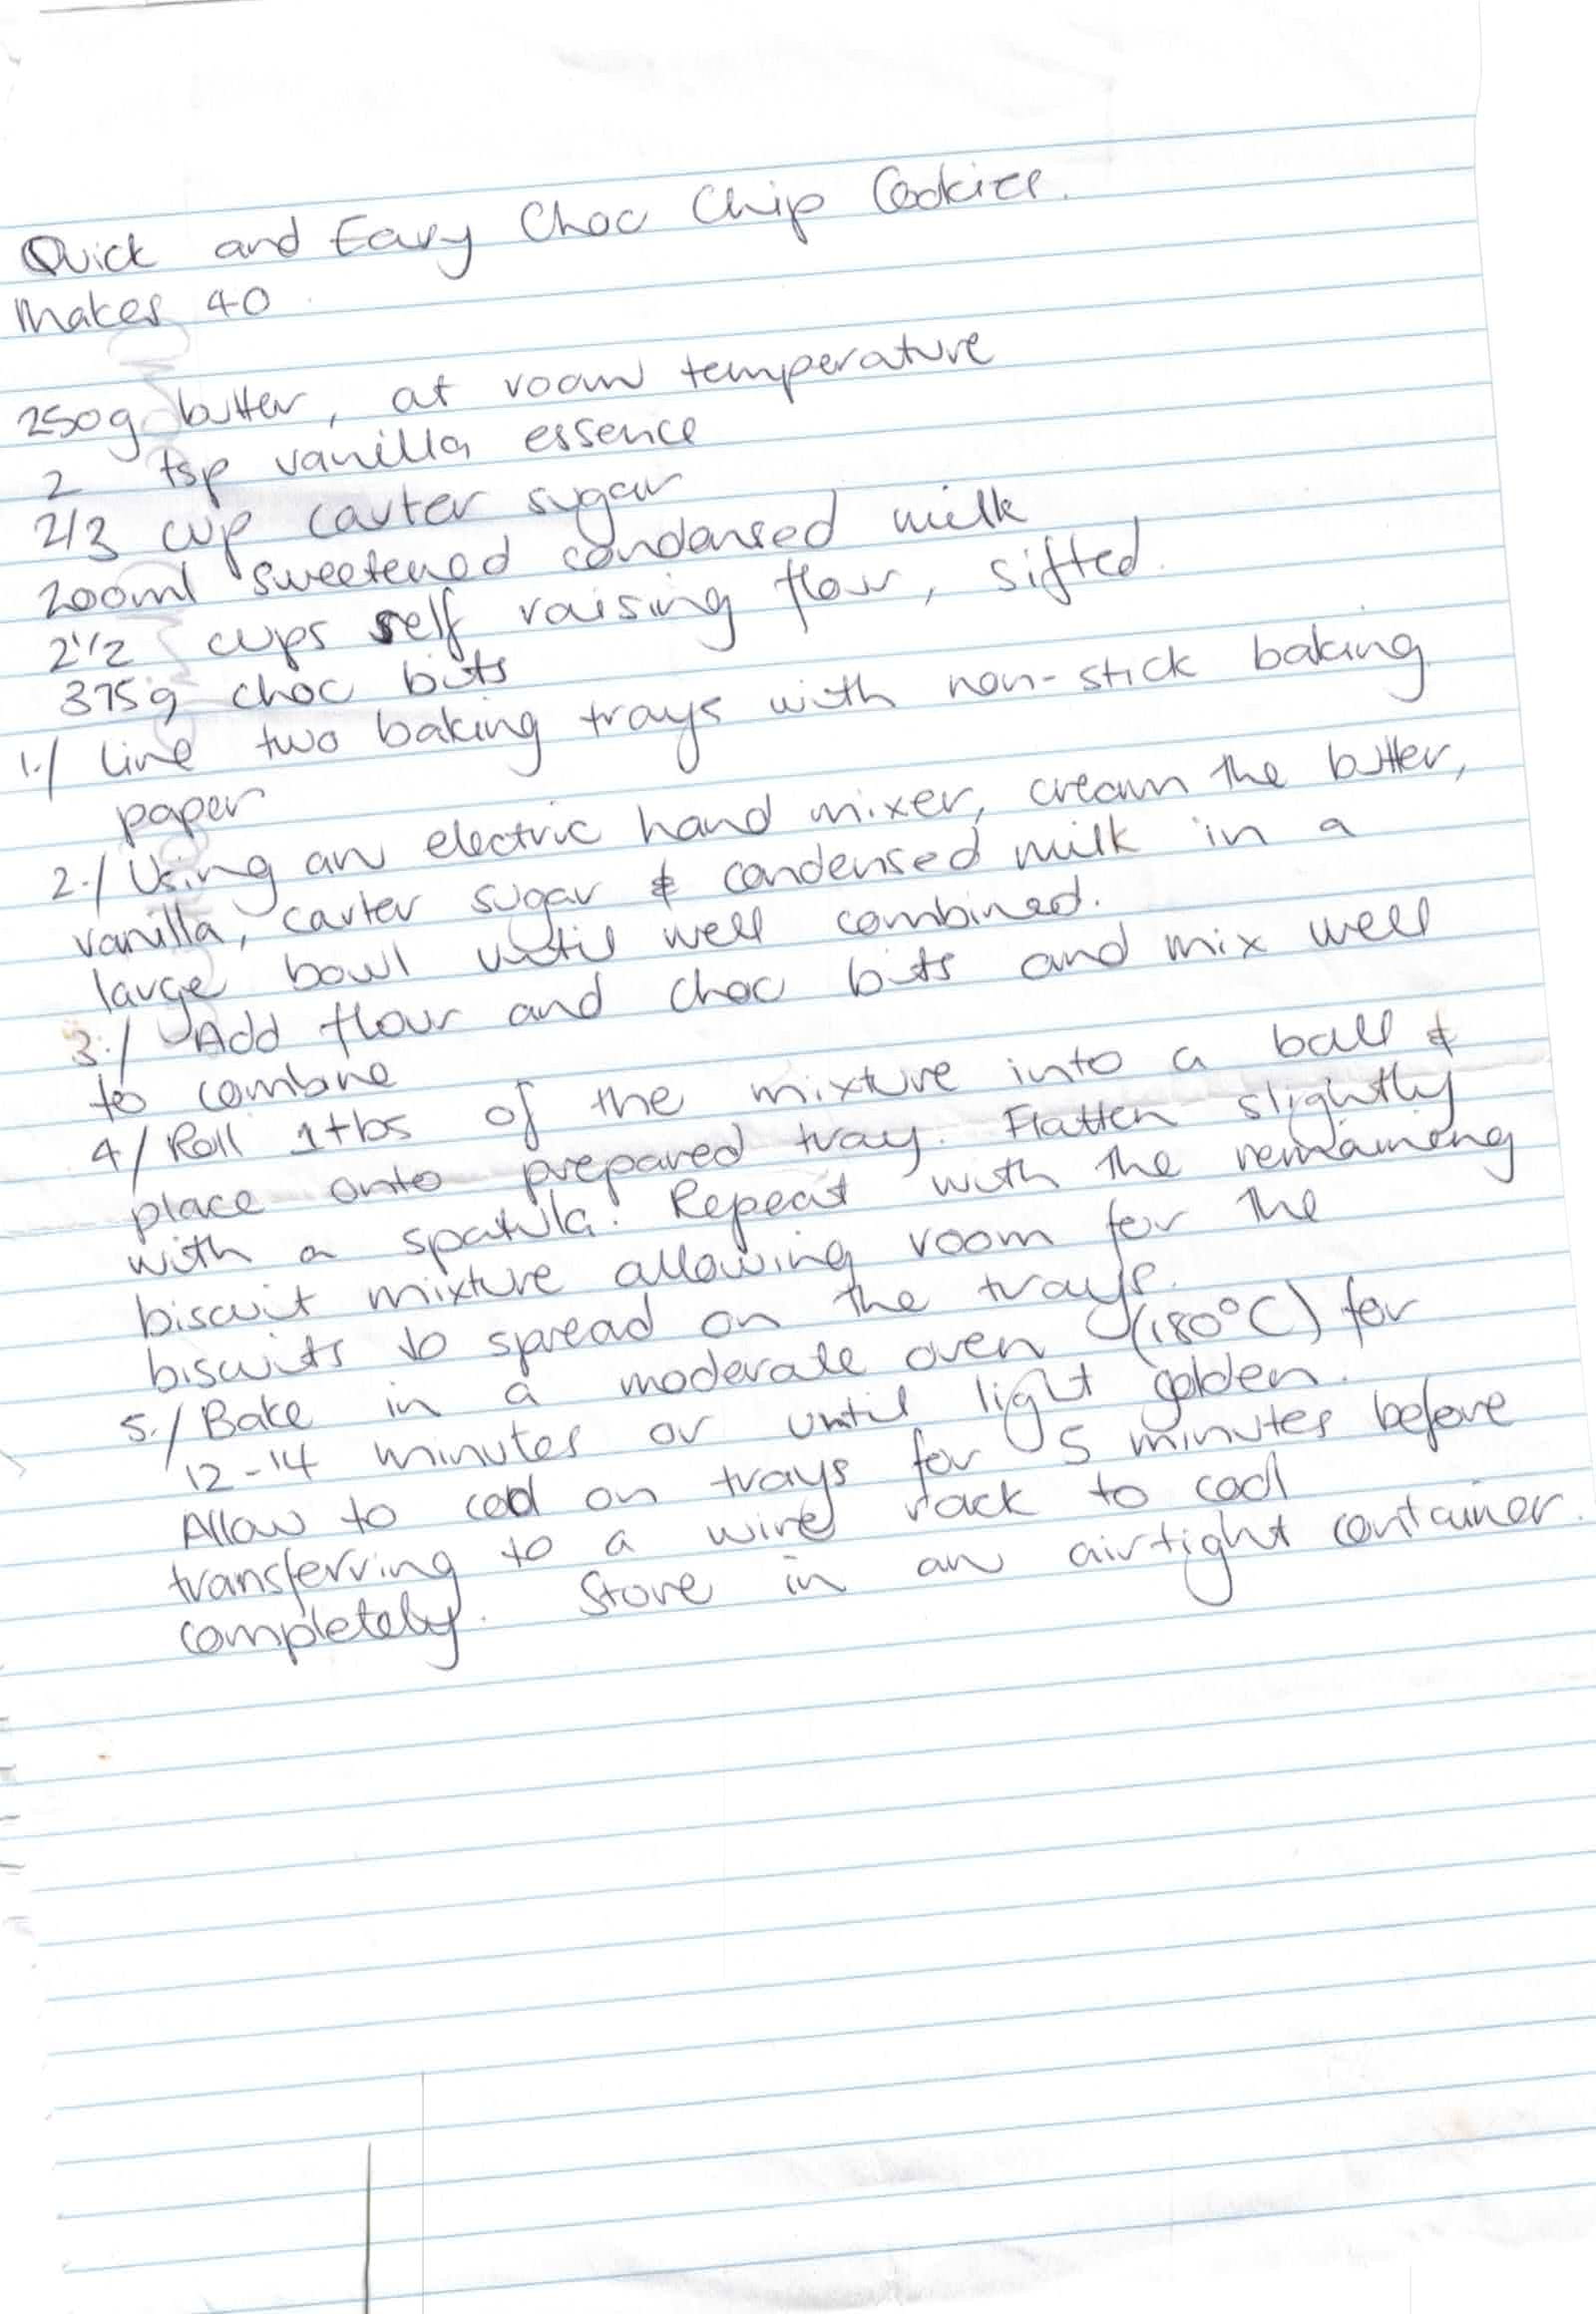 Quick and Easy Choc Chip Cookies.
Makes 40
250g butter, at room temperature
2 tsp vanilla essence
2/3 cup caster sugar
200ml sweetened condensed milk
2 1/2 cups self raising flour, sifted.
375g choc bits
1./ Line two baking trays with non-stick baking
paper
2./ Using an electric hand mixer, cream the butter,
vanilla, caster sugar & condensed milk in a
large bowl until well combined.
3./ Add flour and choc bits and mix well
to combine
4/ Roll 1tbs of the mixture into a ball &
place onto prepared tray. Flatten slightly
with a spatula. Repeat with the remaining
biscuit mixture allowing room for the
biscuits to spread on the trays.
5./ Bake in a moderate oven (180°C) for
12-14 minutes or until light golden.
Allow to cool on trays for 5 minutes before
transferring to a wire rack to cool
completely. Store in an airtight container.